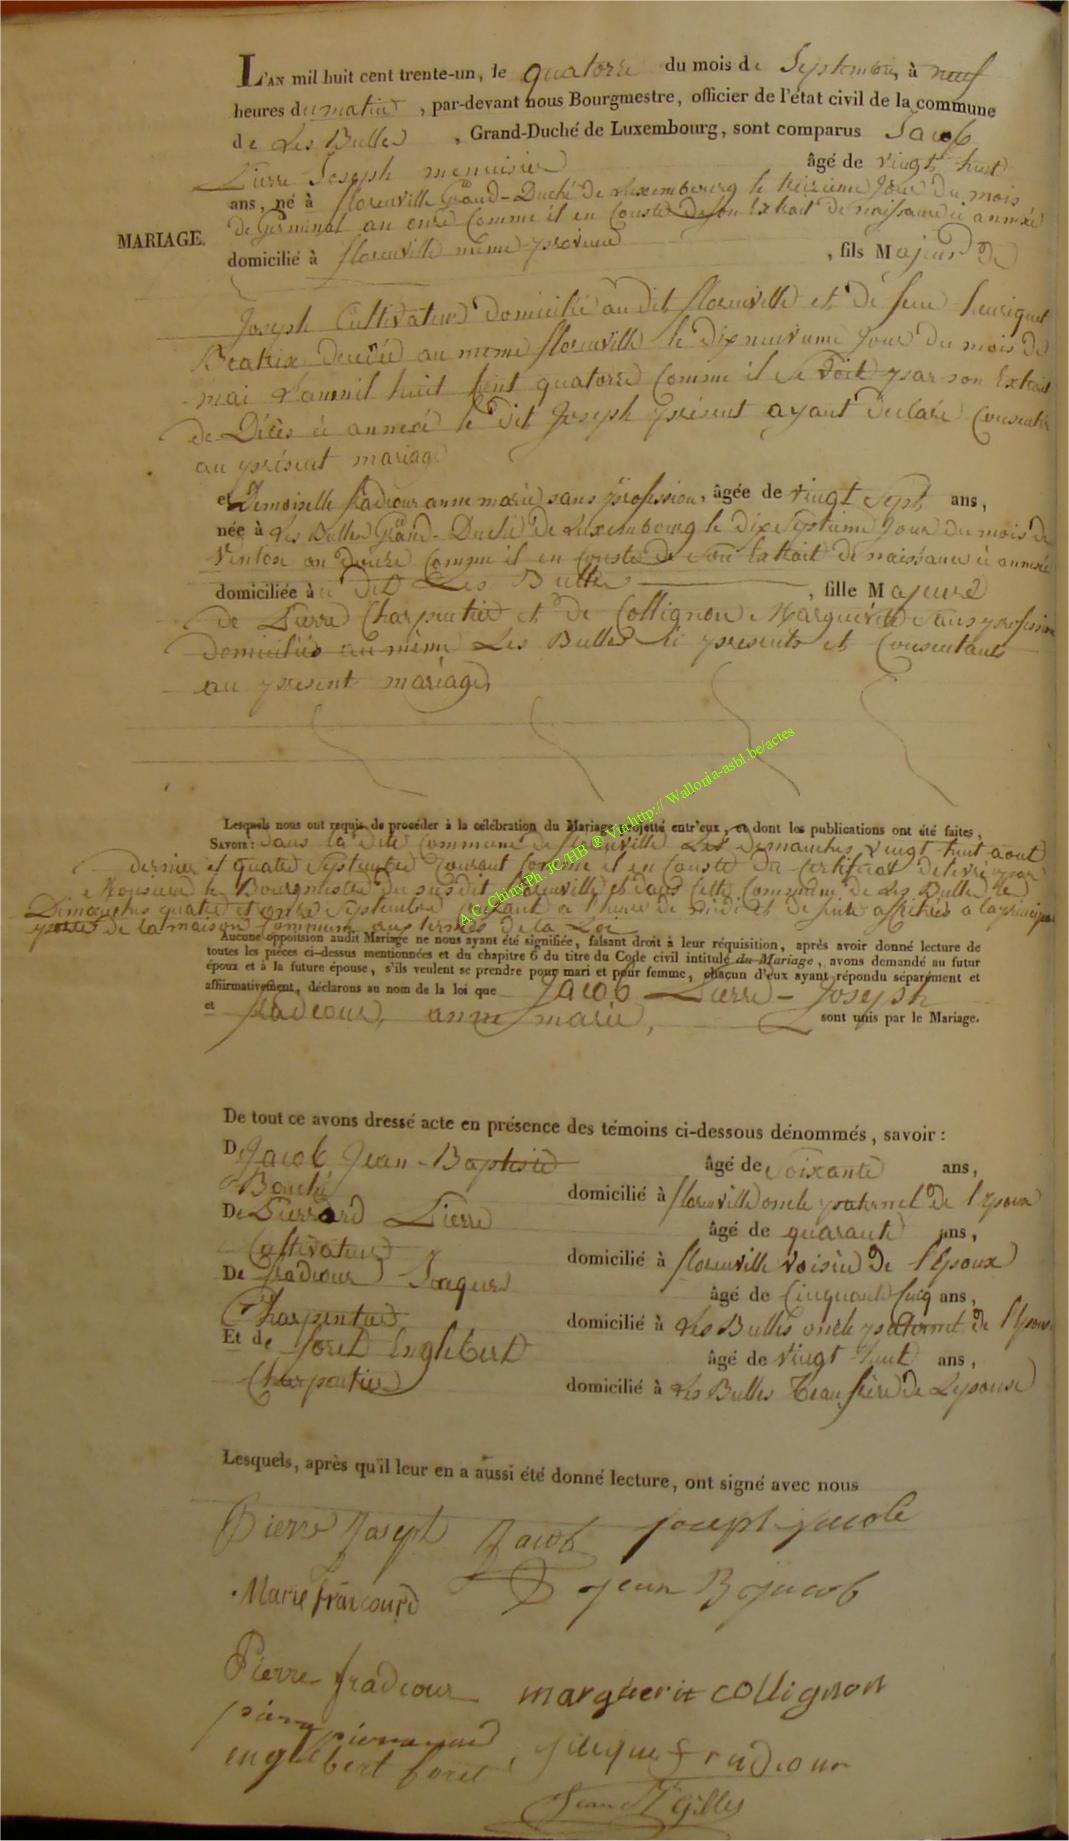 L'AN mil huit cent trente-un, le quatorze du mois de Septembre, à neuf
heures du matin, par-devant nous Bourgmestre, officier de l'état civil de la commune
de Les Bulles, Grand-Duché de Luxembourg, sont comparus Jacob
Pierre Joseph menuisier âgé de vingt huit
ans, né à florenville Grand-Duché de Luxembourg le treizieme Jour du mois
de Germinal an onze Comme il en Conste de son Extrait de naissance ci annexée
MARIAGE.
domicilié à florenville même province, fils Majeur de
Joseph Cultivateur domicilié au dit florenville et de feue henriquet
Beatrix decedée au meme florenville le dix neuvieme Jour du mois de
mai L'an mil huit Cent quatorze Comme il se voit par son Extrait
de Décès ci annexé le dit Joseph présent ayant declaré Consentir
au présent mariage
et Demoiselle fradcour anne marie sans profession, âgée de vingt Sept ans,
née à Les Bulles Grand-Duché de Luxembourg le dix septieme Jour du mois de
Ventose an douze Comme il en Conste de son Extrait de naissance ci annexée
domiciliée à dit Les Bulles, fille Majeure
de Pierre Charpentier et de Collignon Marguerite sans profession
domiciliés au même Les Bulles ici presents et Consentants
au present mariage,
Lesquels nous ont requis de procéder à la célébration du Mariage projetté entr'eux, et dont les publications ont été faites,
SAVOIR: dans la dite Commune de florenville Les Dimanches vingt huit aout
dernier et quatre Septembre Courant Comme il en Conste du Certificat delivré par
Monsieur le Bourgmestre du susdit florenville et dans Cette Commune de Les Bulles le
Dimanches quatre et onze Septembre Courant a l'heure de midi et de suite affichés a la principale
porte de la maison Commune aux termes de la Loi
Aucune oppoitsion audit Mariage ne nous ayant été signifiée, faisant droit à leur réquisition, après avoir donné lecture de
toutes les pièces ci-dessus mentionnées et du chapitre 6 du titre du Code civil intitulé du Mariage, avons demandé au futur
époux et à la future épouse, s'ils veulent se prendre pour mari et pour femme, chacun d'eux ayant répondu séparément et
affirmativement, déclarons au nom de la loi que Jacob Pierre-Joseph
et fradcour, anne marie, sont unis par le Mariage.
De tout ce avons dressé acte en présence des témoins ci-dessous dénommés, savoir:
De Jacob Jean-Baptiste âgé de Soixante ans,
Bouché domicilié à florenville oncle paternel de l'Epoux
De Pierrard Pierre âgé de quarante ans,
Cultivateur domicilié à florenville voisin de l'Epoux
De fradcour Jaques âgé de Cinquante Cinq ans,
Charpentier domicilié à Les Bulles oncle paternel de l'Epouse
Et de foret Englebert âgé de vingt huit ans,
Charpentier domicilié à Les Bulles Beau frère de L'epouse
Lesquels, après qu'il leur en a aussi été donné lecture, ont signé avec nous
Pierre Joseph Jacob joseph jacob
Marie fraicourd jean B jacob
Pierre fradcour marguerit collignon
pierre pierrard
englebert foret jacque fradcour
Jean Gilles
A.C. Chiny Ph JC/HB ® Via http:// Wallonia-asbl.be/actes